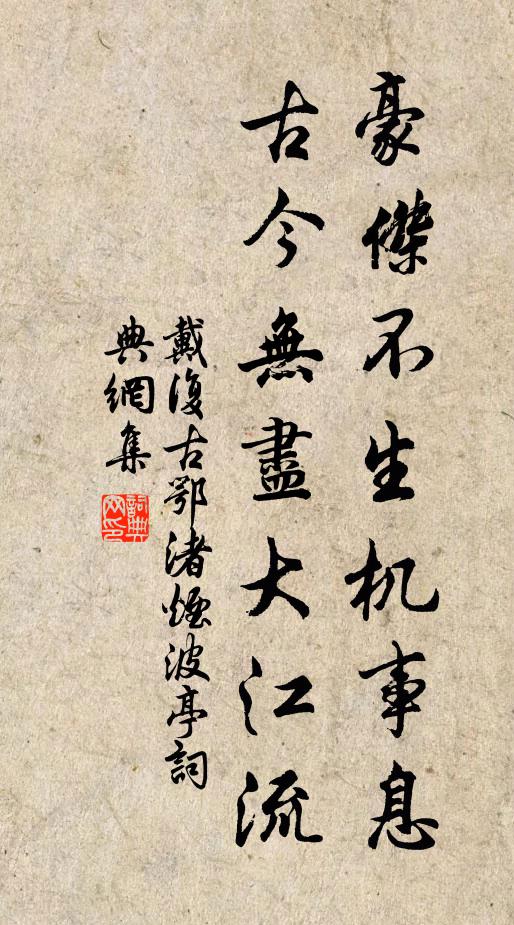 豪傑不生机事息
古今無盡大江流
戴復古鄂渚煙波亭詞
典網集
詞典
网印